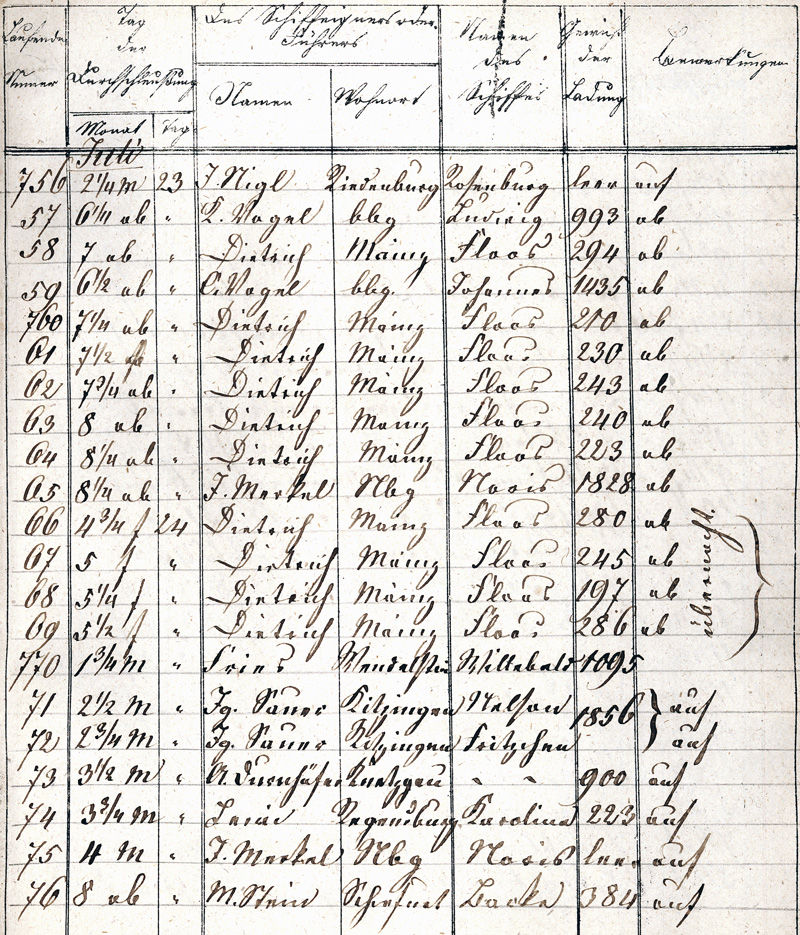 Laufende Numer
Tag der Durchschleußung
Des Schiffeigners oder Führers
Namen des Schiffes
Gewicht der Ladung
Bemerkungen
Monat Tag Namen Wohnort
Juli
756 2 1/4 M 23 J. Nigl Riedenburg Rosenburg leer auf
57 6 1/4 ab " L. Vogel bbg Ludwig 993 ab
58 7 ab " Dietrich Mainz Floos 294 ab
59 6 1/2 ab " C. Vogel bbg. Johannes 1435 ab
760 7 1/4 ab " Dietrich Mainz Floos 210 ab
61 7 1/2 ab " Dietrich Mainz Floos 230 ab
62 7 3/4 ab " Dietrich Mainz Floos 243 ab
63 8 ab " Dietrich Mainz Floos 240 ab
64 8 1/4 ab " Dietrich Mainz Floos 223 ab
65 8 1/4 ab " J. Merkel Nbg Noris 1828 ab
66 4 3/4 f 24 Dietrich Mainz Floos 280 ab
67 5 f " Dietrich Mainz Floos 245 ab
68 5 1/4 f " Dietrich Mainz Floos 197 ab
69 5 1/2 f " Dietrich Mainz Floos 286 ab
übernacht.
770 1 3/4 M " Fries Wendelstein Willebald 1095
71 2 1/2 M " Jg. Sauer Kitzingen Nelson 1856 auf
72 2 3/4 M " Jg. Sauer Kitzingen Fritzchen auf
73 3 1/2 M " Knetzgau " " 900 auf
74 3 3/4 M " Regensburg Karolina 223 auf
75 4 M " J. Merkel Nbg Noris leer auf
76 8 ab " M. Stein 384 auf